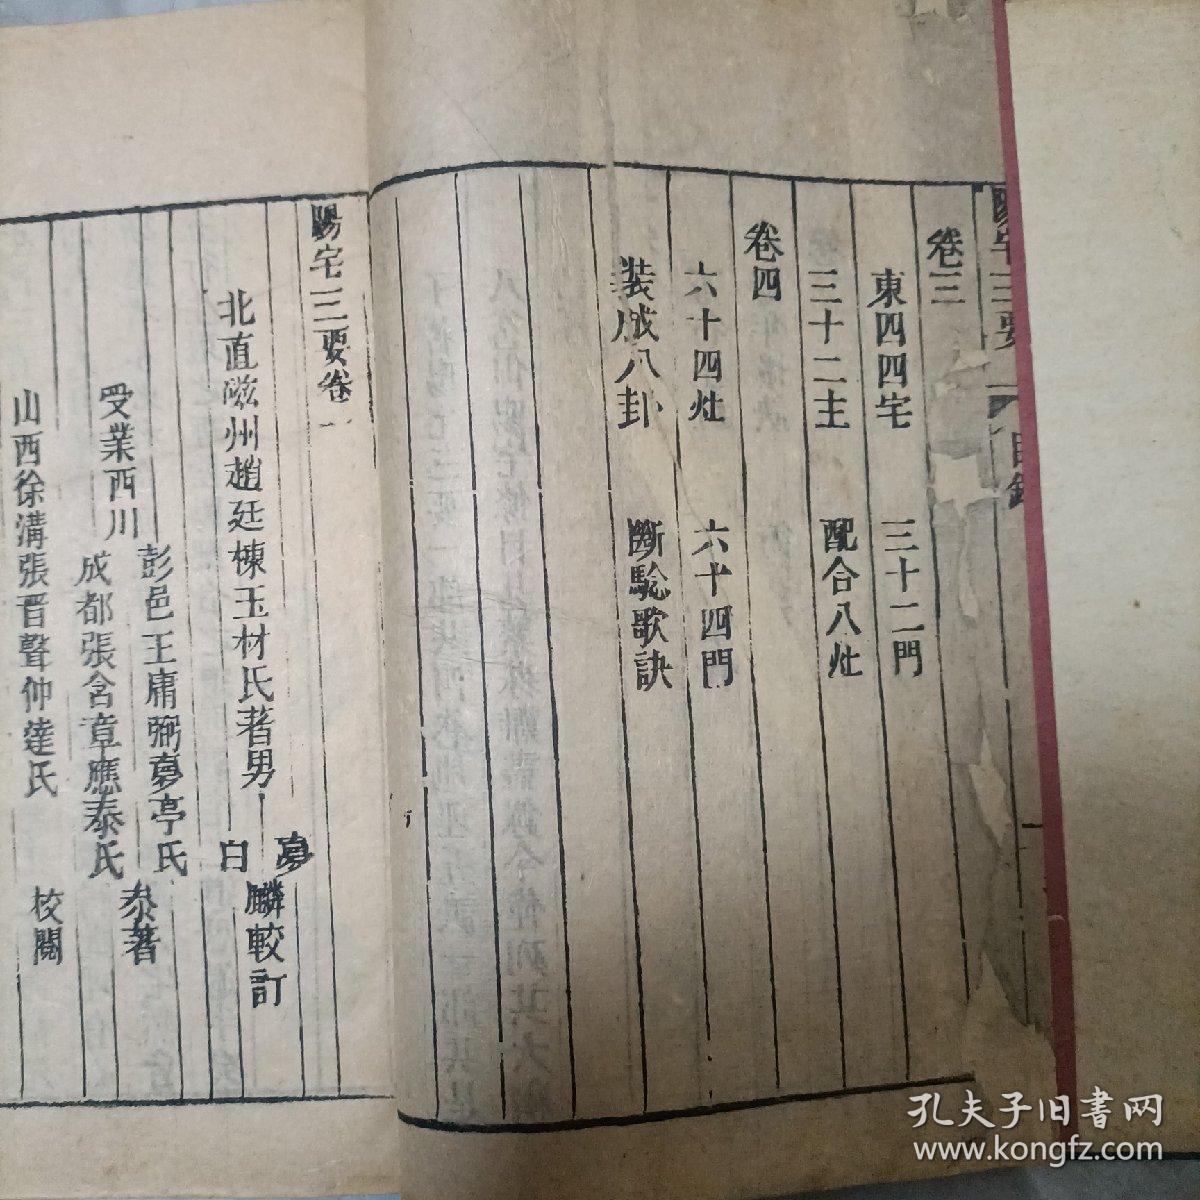 陽宅三要 目錄
卷三
東四四宅 三十二門
三十二主 配合八灶
卷四
六十四灶 六十四門
裝成八卦 斷驗歌訣
陽宅三要卷一
北直磁州趙廷棟玉材氏著男
夢
白
麟較訂
受業西川
彭邑王庸弼夢亭氏
成都張含章應泰氏
泰著
山西徐溝張晋聲仲達氏 校閱
孔夫子旧书网
www.kongfz.com